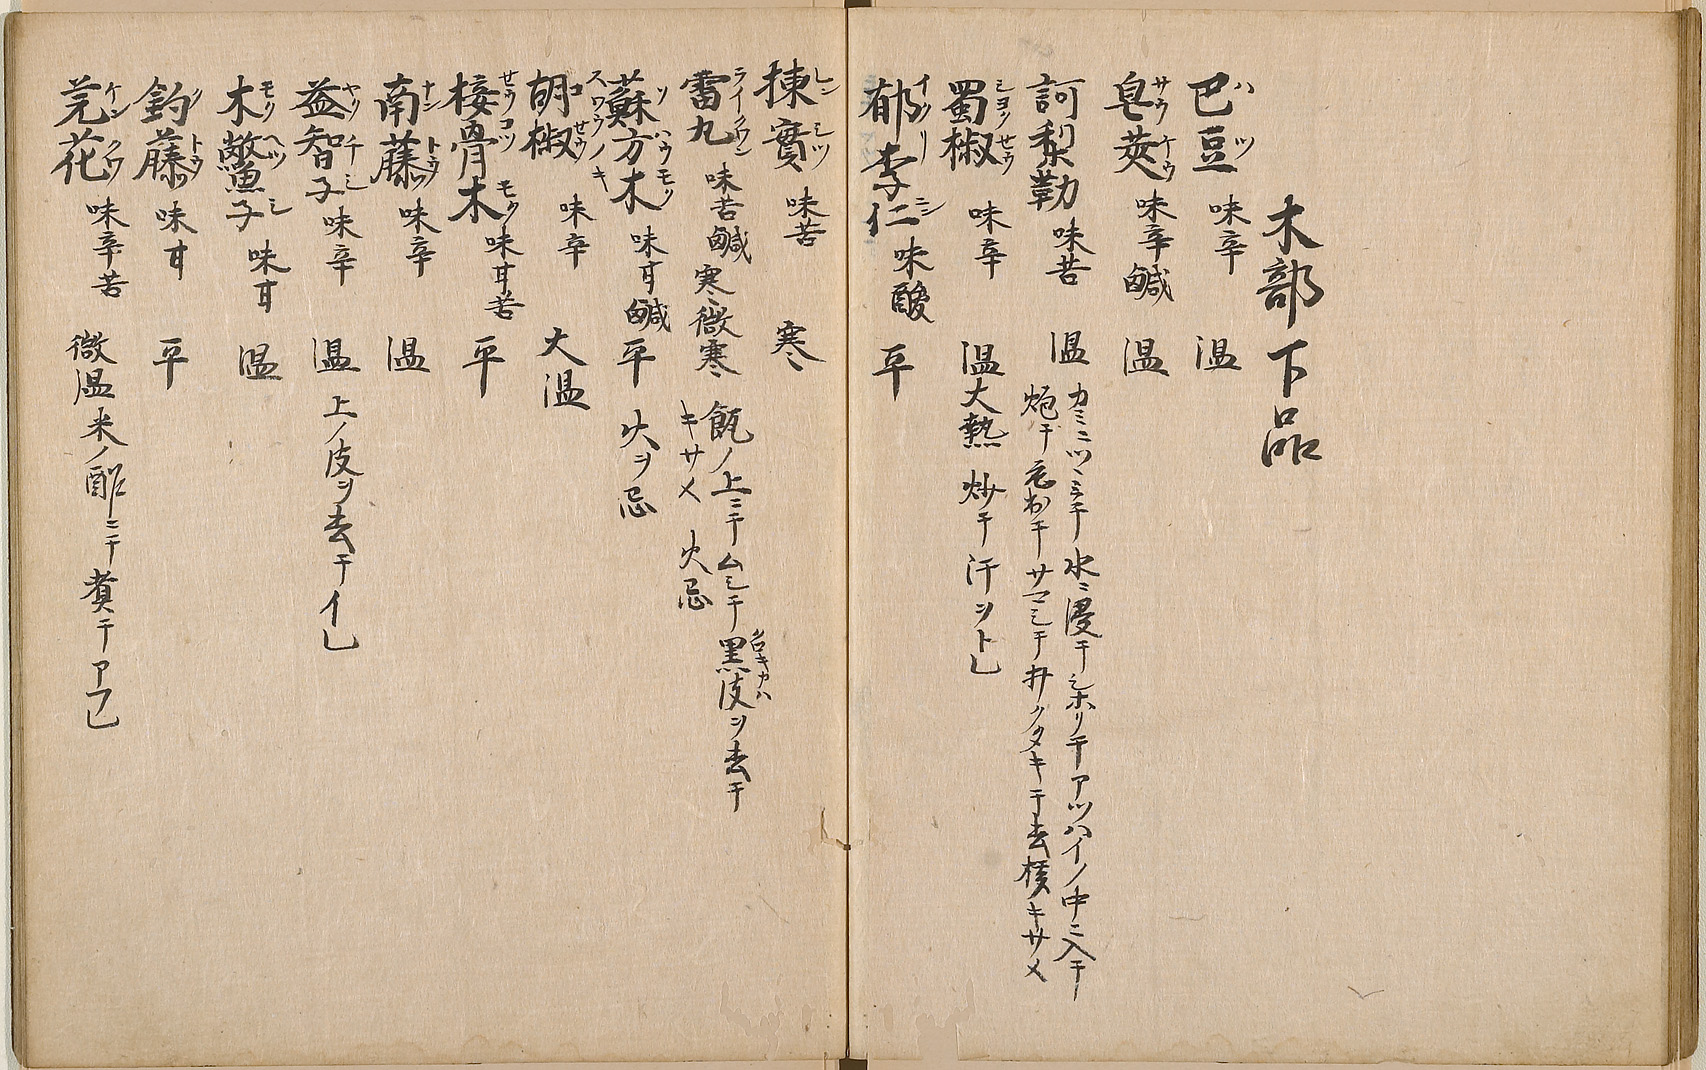 木部下品
巴豆 味辛 温
皂莢 味辛鹹 温
訶梨勒 味苦 温 カミニツヽミテ水ニ浸テシホリテアツハイノ中ニ入テ
炮テ毛 テサマシテ クタキテ去核キサメ
蜀椒 味辛 温大熱 炒テ汗ヲト乚
郁李仁 味酸 平
楝實 味苦 寒
雷丸 味苦鹹 寒微寒 甑ノ上ニテムシテ黒皮ヲ去テ
キサメ 火忌
蘇方木 味甘鹹 平 火ヲ忌
胡椒 味辛 大温
接骨木 味甘苦 平
南藤 味辛 温
益智子 味辛 温 上ノ皮ヲ去テイ乚
木鼈子 味甘 温
釣藤 味甘 平
芫花 味辛苦 微温 米ノ酢ニテ煮テアフ乚